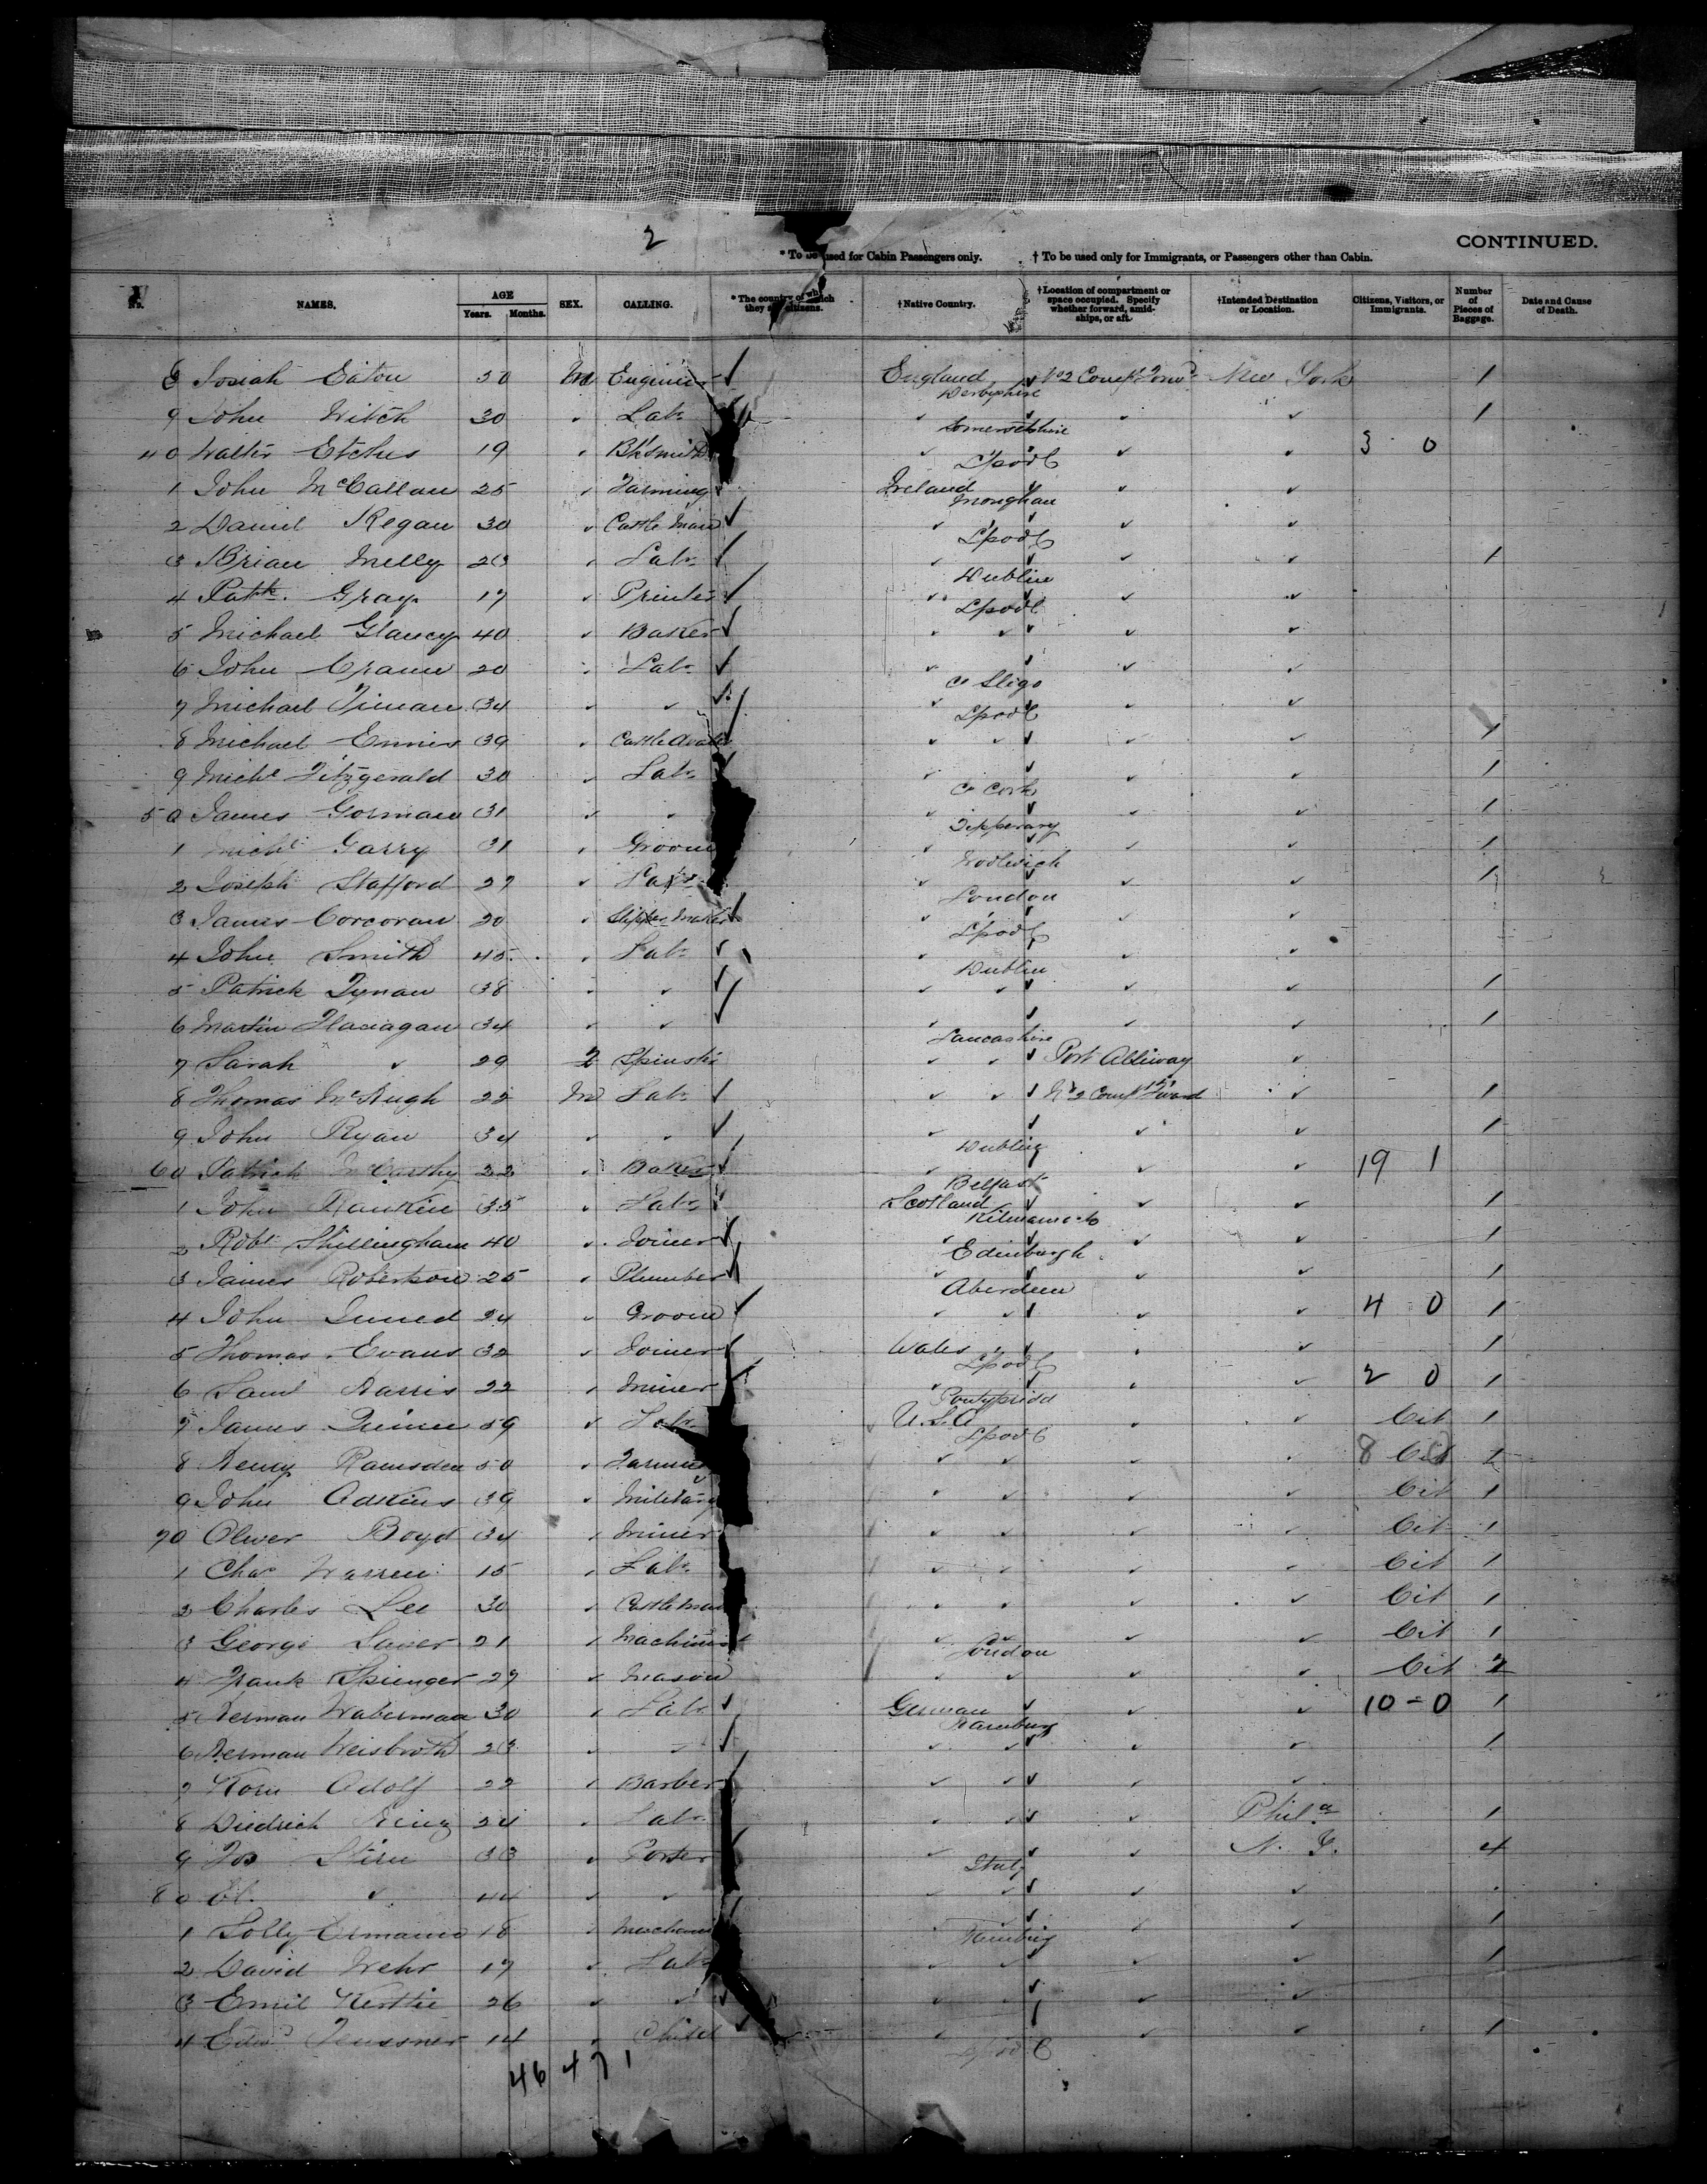 2
CONTINUED.
* To be used for Cabin Passengers only. † To be used only for Immigrants, or Passengers other than Cabin.
No. NAMES. AGE Years. Months. SEX. CALLING. * The country of which they are citizens. †Native Country. †Location of compartment or space occupied. Specify whether forward, amidships, or aft. †Intended Destination or Location. Citizens, Visitors, or Immigrants. Number of Pieces of Baggage. Date and Cause of Death.
8 Josiah Eaton 30 M Engineer ✓ England Derbyshire ✓ No 2 Compt Forwd New York 1
9 John 30 " Labr " Somersetshire ✓ " " 1
40 Walter Etches 19 " Bksmith " L'pool " " 3 0
1 John McCallan 25 " Farming ✓ Ireland Monghan ✓ " "
2 Daniel Regan 30 " Cattle Man ✓ " L'pool ✓ " "
3 Brian Melly 23 " Labr ✓ " Dublin ✓ " " 1
4 Patk. Gray 17 " Printer ✓ " L'pool ✓ " "
5 Michael Glancy 40 " Baker ✓ " " ✓ " "
6 John 20 " Labr ✓ " Co Sligo ✓ " "
7 Michael 34 " " ✓ " L'pool " "
8 Michael Ennis 39 " Cattle ✓ " " ✓ " " 1
9 Michl Fitzgerald 30 " Labr ✓ " Co Cork ✓ " " 1
50 James Gorman 31 " " " Tipperary ✓ " " 1
1 Michl Garry 31 " Groom " Woolwich ✓ " " 1
2 Joseph Stafford 27 " Labr " London " " 1
3 James Corcoran 20 " Slipper Maker ✓ " L'pool ✓ " "
4 John Smith 45 " Labr ✓ " Dublin " "
5 Patrick Tynan 38 " " ✓ " " ✓ " " 1
6 Martin Flanagan 34 " " ✓ " Lancashire ✓ " " 1
7 Sarah " 29 Spinstr " " ✓ Port Alliway "
8 Thomas McHugh 22 M Labr ✓ " " ✓ No 2 Compt "  1
9 John Ryan 34 " " ✓ " Dublin ✓ " " 1
60 Patrick McCarthy 22 " Baker ✓ " Belfast " " 19 1
1 John Rankin 35 " Labr ✓ Scotland Kilmarnock ✓ " " 1
2 Robt Shillingham 40 " Joiner ✓ " Edinburgh ✓ " " 1
3 James Robertson 25 " Plumber ✓ " Aberdeen ✓ " " 1
4 John 24 " Groom ✓ " " ✓ " " 4 0 1
5 Thomas Evans 32 " Joiner ✓ Wales L'pool ✓ " " 1
6 Saml Harris 22 " Miner ✓ " Pontypridd ✓ " " 2 0 1
7 James 59 " Labr U.S.A L'pool " " Cit 1
8 Henry Ramsden 50 " Farmer " " " " 8 Cit 1
9 John Adkins 39 " Military " " " " Cit 1
70 Oliver Boyd 34 " Miner " " " " Cit 1
1 Chas Warren 15 " Labr " " " " Cit 1
2 Charles Lee 30 " Cattleman " " " " Cit 1
3 George 21 " Machinist " London " " Cit 1
4 Frank Springer 27 " Mason " " " " Cit 2
5 Herman Waberman 30 " Labr ✓ German Hamburg ✓ " " 10 - 0 1
6 Herman Weisbroth 23 " " ✓ " " ✓ " " 1
7 Korn Adolf 22 " Barber ✓ " " ✓ " "
8 Diedrich 24 " Labr " " ✓ " Phila 1
9 Jos Stern 33 " Porter ✓ " Italy ✓ " N. Y. 4
80 " 44 " " " " ✓ " "
1 Solly 18 " " ✓ " " 1
2 David Wehr 17 " Labr " " ✓ " " 1
3 Emil 26 " " ✓ " " ✓ " "
4 Edwd 14 " Child ✓ " L'pool " " 1
46 4 7 1